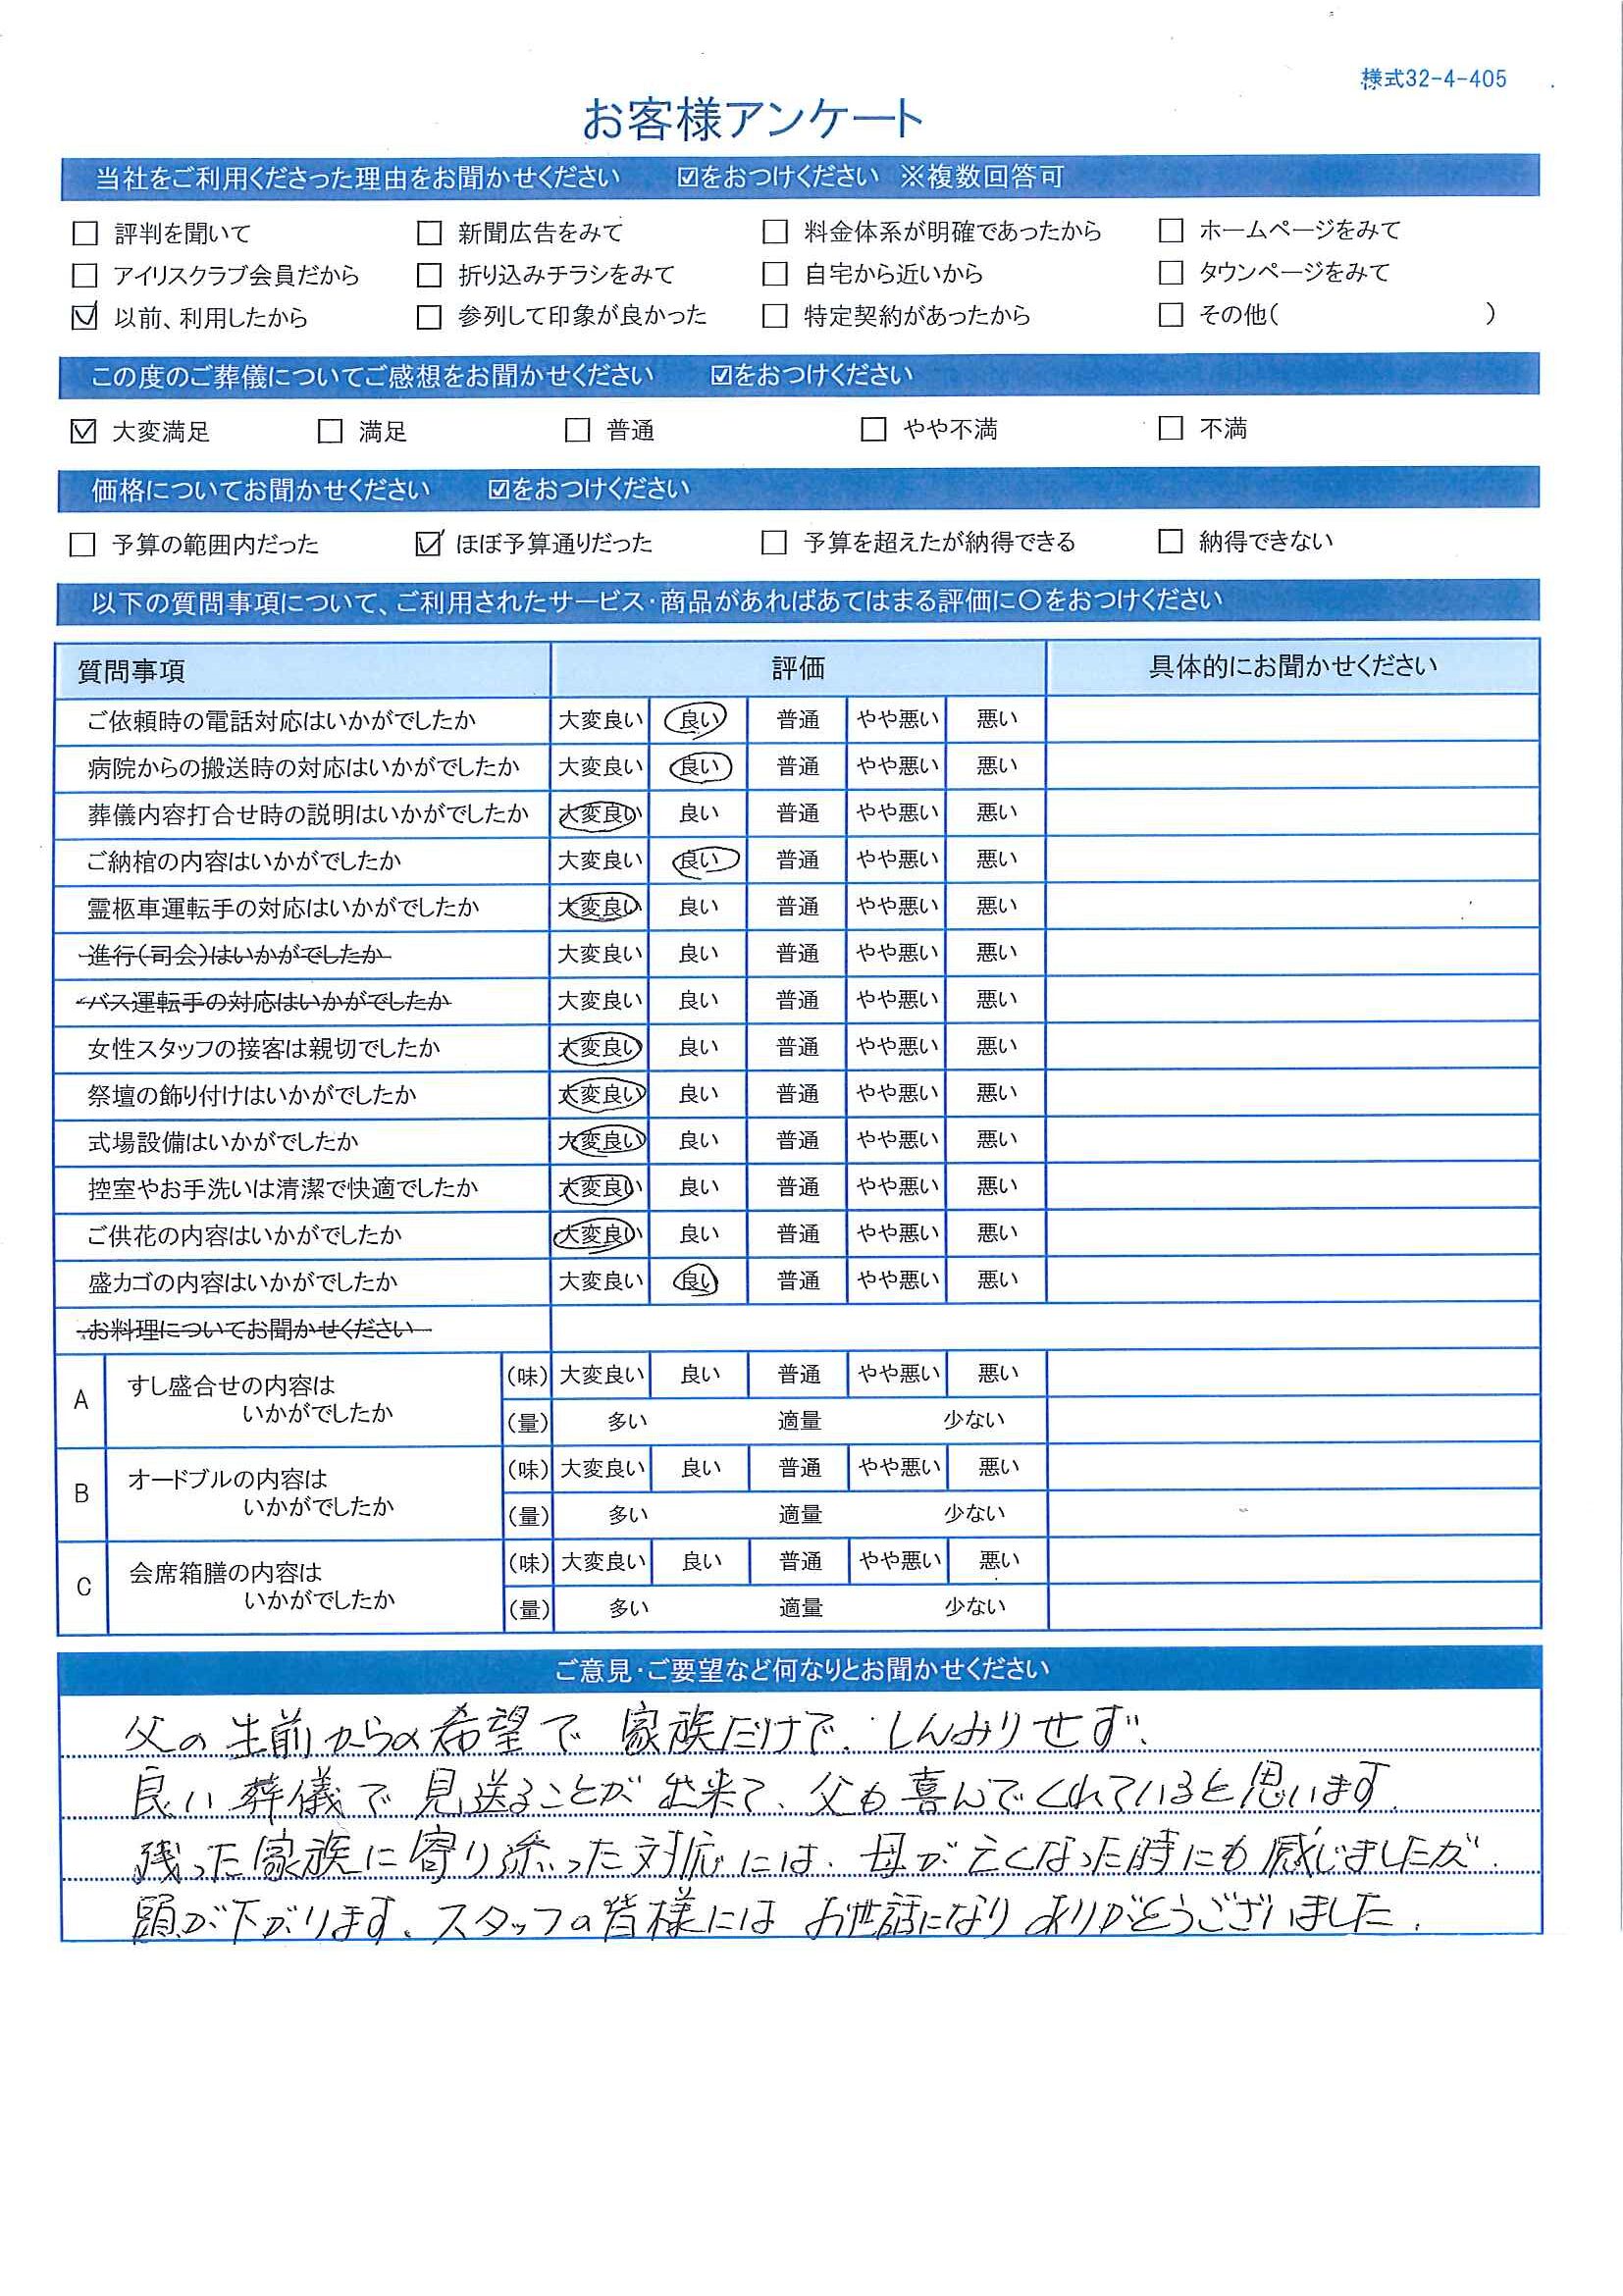 様式32-4-405
お客様アンケート
当社をご利用くださった理由をお聞かせください ☑をおつけください ※複数回答可
☐ 評判を聞いて ☐ 新聞広告をみて ☐ 料金体系が明確であったから ☐ ホームページをみて
☐ アイリスクラブ会員だから ☐ 折り込みチラシをみて ☐ 自宅から近いから ☐ タウンページをみて
☑ 以前、利用したから ☐ 参列して印象が良かった ☐ 特定契約があったから ☐ その他( )
この度のご葬儀についてご感想をお聞かせください ☑をおつけください
☑ 大変満足 ☐ 満足 ☐ 普通 ☐ やや不満 ☐ 不満
価格についてお聞かせください ☑をおつけください
☐ 予算の範囲内だった ☑ ほぼ予算通りだった ☐ 予算を超えたが納得できる ☐ 納得できない
以下の質問事項について、ご利用されたサービス・商品があればあてはまる評価に〇をおつけください
質問事項 評価 具体的にお聞かせください
ご依頼時の電話対応はいかがでしたか 大変良い 良い 普通 やや悪い 悪い
病院からの搬送時の対応はいかがでしたか 大変良い 良い 普通 やや悪い 悪い
葬儀内容打合せ時の説明はいかがでしたか 大変良い 良い 普通 やや悪い 悪い
ご納棺の内容はいかがでしたか 大変良い 良い 普通 やや悪い 悪い
霊柩車運転手の対応はいかがでしたか 大変良い 良い 普通 やや悪い 悪い
進行(司会)はいかがでしたか 大変良い 良い 普通 やや悪い 悪い
バス運転手の対応はいかがでしたか 大変良い 良い 普通 やや悪い 悪い
女性スタッフの接客は親切でしたか 大変良い 良い 普通 やや悪い 悪い
祭壇の飾り付けはいかがでしたか 大変良い 良い 普通 やや悪い 悪い
式場設備はいかがでしたか 大変良い 良い 普通 やや悪い 悪い
控室やお手洗いは清潔で快適でしたか 大変良い 良い 普通 やや悪い 悪い
ご供花の内容はいかがでしたか 大変良い 良い 普通 やや悪い 悪い
盛カゴの内容はいかがでしたか 大変良い 良い 普通 やや悪い 悪い
お料理についてお聞かせください
A すし盛合せの内容は
いかがでしたか
(味) 大変良い 良い 普通 やや悪い 悪い
(量) 多い 適量 少ない
B オードブルの内容は
いかがでしたか
(味) 大変良い 良い 普通 やや悪い 悪い
(量) 多い 適量 少ない
C 会席箱膳の内容は
いかがでしたか
(味) 大変良い 良い 普通 やや悪い 悪い
(量) 多い 適量 少ない
ご意見・ご要望など何なりとお聞かせください
父の生前からの希望で 家族だけで、しんみりせず、
良い葬儀で見送ることが出来て、父も喜んでくれていると思います。
残った家族に寄り添った対応には、母が亡くなった時にも感じましたが、
頭が下がります。スタッフの皆様にはお世話になりありがとうございました。